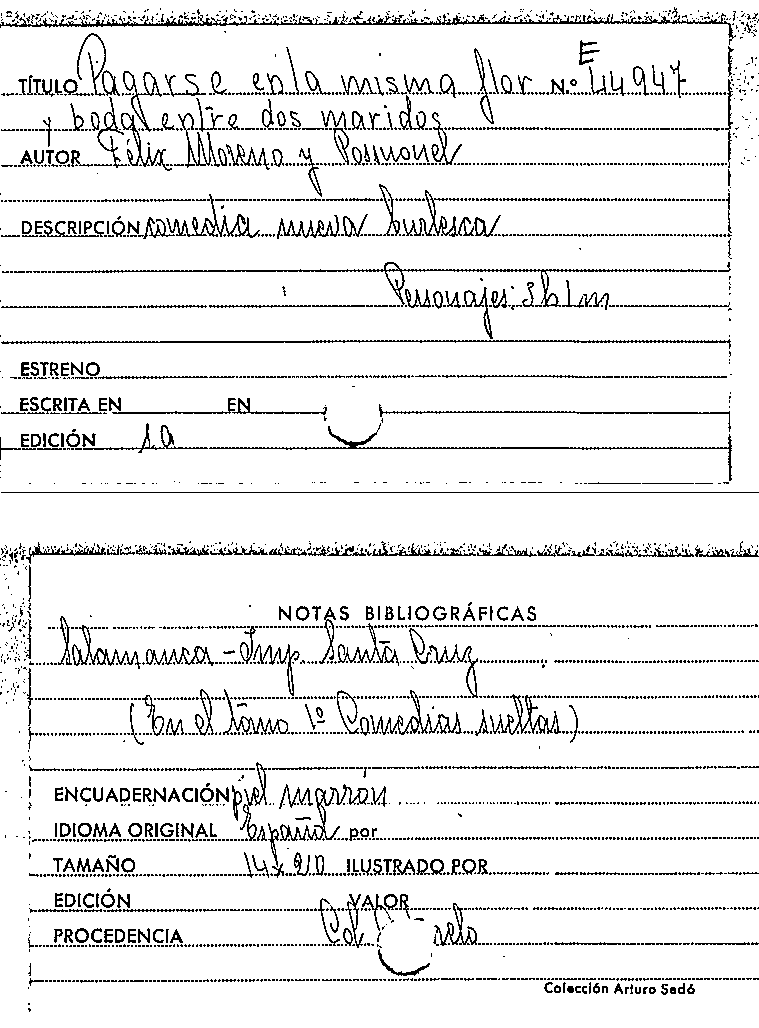 E
TÍTULO Pagarse en la misma flor N.o 44947
y boda entre dos maridos
AUTOR Félix Moreno y Posmonel
DESCRIPCIÓN comedia nueva burlesca
Personajes: 3 h 1 m
ESTRENO
ESCRITA EN EN
EDICIÓN s.a
NOTAS BIBLIOGRÁFICAS
Salamanca - Imp. Santa Cruz
(En el tomo 1º Comedias sueltas)
ENCUADERNACIÓN piel marrón
IDIOMA ORIGINAL Español por
TAMAÑO 14 x 20 ILUSTRADO POR
EDICIÓN VALOR
PROCEDENCIA Col.
Colección Arturo Sedó